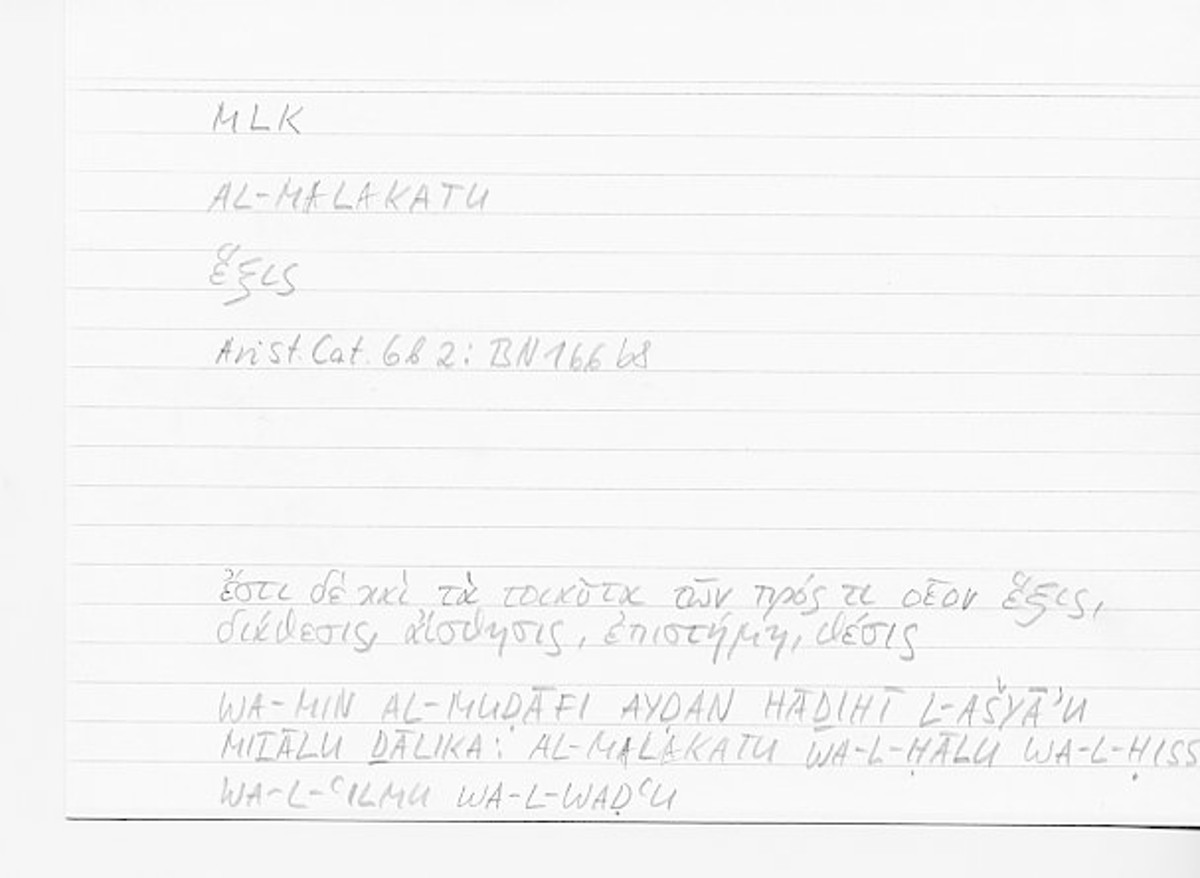 MLK
AL-MALAKATU
ἕξις
Arist. Cat. 6b2: BN 166b8
ἔστι δὲ καὶ τὰ τοιαῦτα τῶν πρός τι οἷον ἕξις,
διάθεσις, αἴσθησις, ἐπιστήμη, θέσις
WA-MIN AL-MUḌĀFI AYḌAN HĀḎIHĪ L-AŠYĀʾU
MIṮĀLU ḎĀLIKA: AL-MALAKATU WA-L-ḤĀLU WA-L-ḤISS
WA-L-ʿILMU WA-L-WAḌʿU